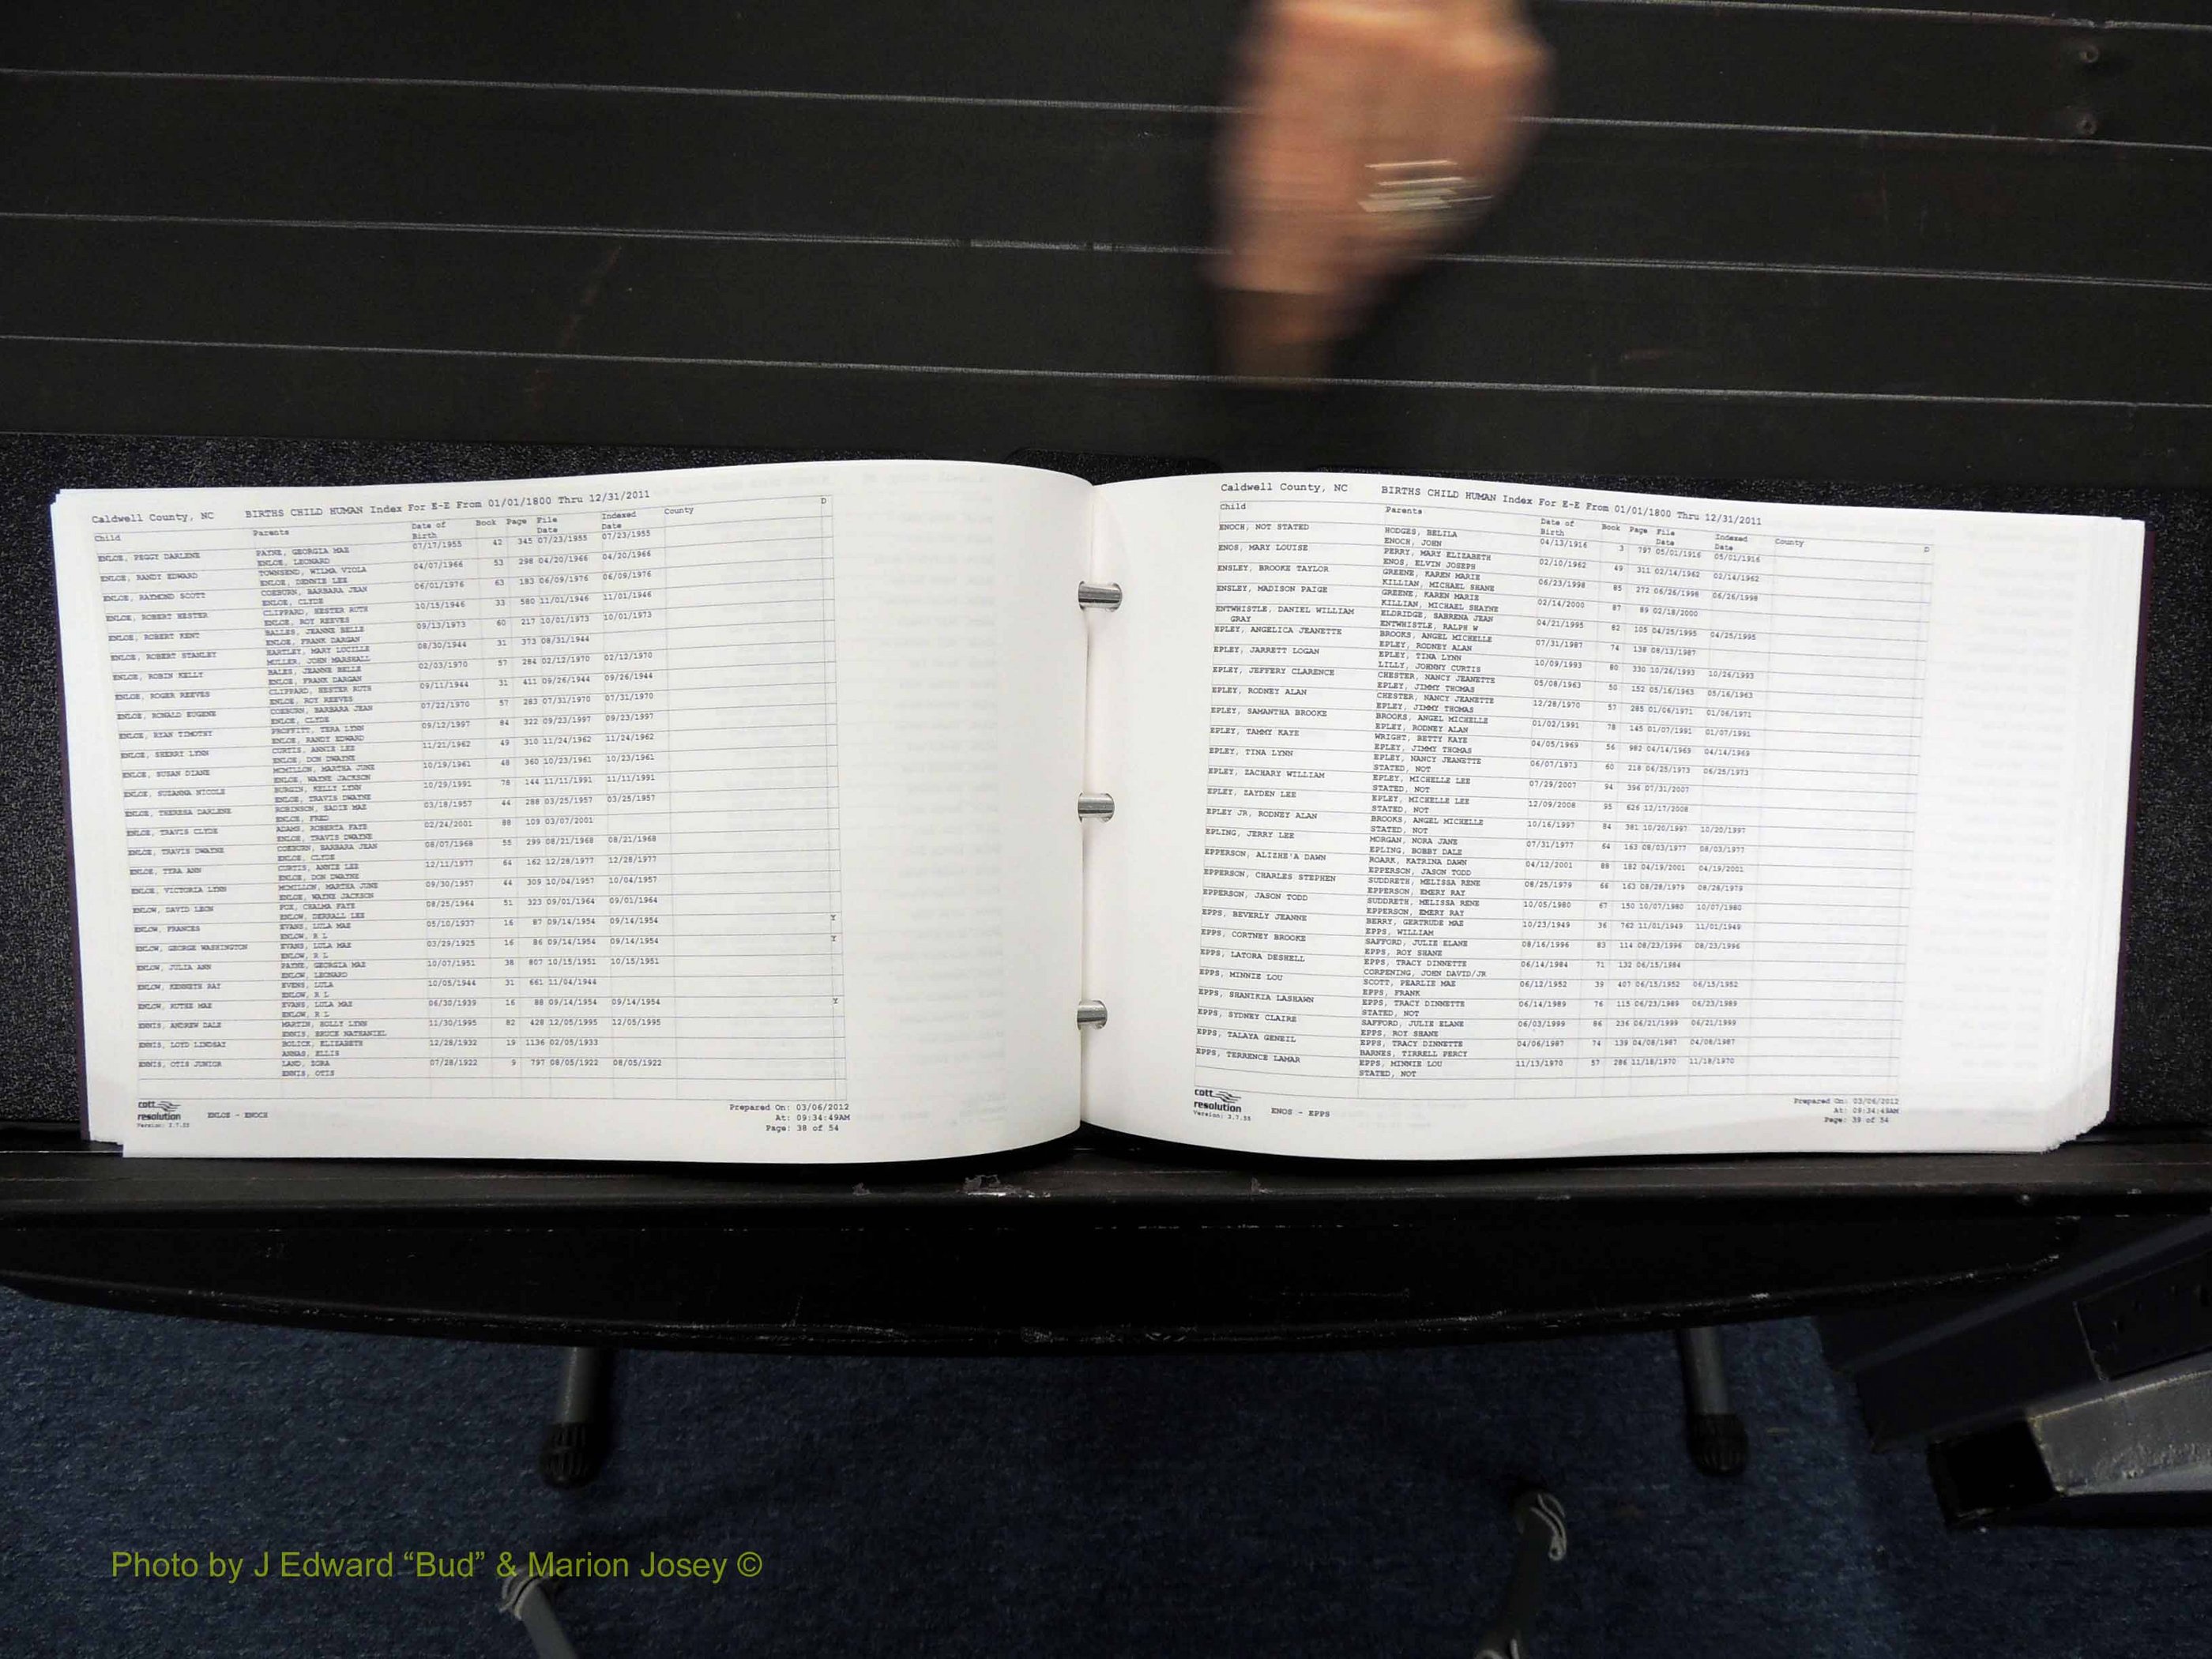 Caldwell County, NC BIRTHS CHILD HUMAN Index For E-E From 01/01/1800 Thru 12/31/2011
Child Parents Date of Birth Book Page File Date Indexed Date County D
ENLOE, PEGGY DARLENE PAYNE, GEORGIA MAE 07/17/1955 42 345 07/23/1955 07/23/1955
ENLOE, LEONARD
ENLOE, RANDY EDWARD TOWNSEND, WILMA VIOLA 04/07/1966 53 298 04/20/1966 04/20/1966
ENLOE, DENNIE LEE
ENLOE, RAYMOND SCOTT COEBURN, BARBARA JEAN 06/01/1976 63 183 06/09/1976 06/09/1976
ENLOE, CLYDE
ENLOE, ROBERT HESTER CLIPPARD, HESTER RUTH 10/15/1946 33 580 11/01/1946 11/01/1946
ENLOE, ROY REEVES
ENLOE, ROBERT KENT BALLES, JEANNE BELLE 09/13/1973 60 217 10/01/1973 10/01/1973
ENLOE, FRANK DARGAN
ENLOE, ROBERT STANLEY HARTLEY, MARY LUCILLE 08/30/1944 31 373 08/31/1944
MULLER, JOHN MARSHALL
ENLOE, ROBIN KELLY BALES, JEANNE BELLE 02/03/1970 57 284 02/12/1970 02/12/1970
ENLOE, FRANK DARGAN
ENLOE, ROGER REEVES CLIPPARD, HESTER RUTH 09/11/1944 31 411 09/26/1944 09/26/1944
ENLOE, ROY REEVES
ENLOE, RONALD EUGENE COEBURN, BARBARA JEAN 07/22/1970 57 283 07/31/1970 07/31/1970
ENLOE, CLYDE
ENLOE, RYAN TIMOTHY PROFFITT, TERA LYNN 09/12/1997 84 322 09/23/1997 09/23/1997
ENLOE, RANDY EDWARD
ENLOE, SHERRY LYNN CURTIS, ANNIE LEE 11/21/1962 49 310 11/24/1962 11/24/1962
ENLOE, DON DWAYNE
ENLOE, SUSAN DIANE MCMILLON, MARTHA JUNE 10/19/1961 48 360 10/23/1961 10/23/1961
ENLOE, WAYNE JACKSON
ENLOE, SUZANNA NICOLE BURGIN, KELLY LYNN 10/29/1991 78 144 11/11/1991 11/11/1991
ENLOE, TRAVIS DWAYNE
ENLOE, THERESA DARLENE ROBINSON, SADIE MAE 03/18/1957 44 288 03/25/1957 03/25/1957
ENLOE, FRED
ENLOE, TRAVIS CLYDE ADAMS, ROBERTA FAYE 02/24/2001 88 109 03/07/2001
ENLOE, TRAVIS DWAYNE
ENLOE, TRAVIS DWAYNE COEBURN, BARBARA JEAN 08/07/1968 55 299 08/21/1968 08/21/1968
ENLOE, CLYDE
ENLOE, TYRA ANN CURTIS, ANNIE LEE 12/11/1977 64 162 12/28/1977 12/28/1977
ENLOE, DON DWAYNE
ENLOE, VICTORIA LYNN MCMILLON, MARTHA JUNE 09/30/1957 44 309 10/04/1957 10/04/1957
ENLOE, WAYNE JACKSON
ENLOW, DAVID LEON FOX, CHALMA FAYE 08/25/1964 51 323 09/01/1964 09/01/1964
ENLOW, DERRALL LEE
ENLOW, FRANCES EVANS, LULA MAE 05/10/1937 16 87 09/14/1954 09/14/1954 Y
ENLOW, R L
ENLOW, GEORGE WASHINGTON EVANS, LOLA MAE 03/29/1925 16 86 09/14/1954 09/14/1954 Y
ENLOW, R L
ENLOW, JULIA ANN PAYNE, GEORGIA MAE 10/07/1951 38 807 10/15/1951 10/15/1951
ENLOW, LEONARD
ENLOW, KENNETH RAY EVENS, LULA 10/05/1944 31 661 11/04/1944
ENLOW, R L
ENLOW, RUTHE MAE EVANS, LULA MAE 06/30/1939 16 88 09/14/1954 09/14/1954 Y
ENLOW, R L
ENNIS, ANDREW DALE MARTIN, HOLLY LYNN 11/30/1995 82 428 12/05/1995 12/05/1995
ENNIS, BRUCE NATHANIEL
ENNIS, LOYD LINDSAY BOLICK, ELIZABETH 12/28/1932 19 1136 02/05/1933
ANNAS, ELLIS
ENNIS, OTIS JUNIOR LAND, DORA 07/28/1922 9 797 08/05/1922 08/05/1922
ENNIS, OTIS
cott
resolution
Version: 3.7.55
ENLOE - ENOCH
Prepared On: 03/06/2012
At: 09:34:49AM
Page: 38 of 54
Caldwell County, NC BIRTHS CHILD HUMAN Index For E-E From 01/01/1800 Thru 12/31/2011
Child Parents Date of Birth Book Page File Date Indexed Date County D
ENOCH, NOT STATED HODGES, BELILA 04/13/1916 3 797 05/01/1916 05/01/1916
ENOCH, JOHN
ENOS, MARY LOUISE PERRY, MARY ELIZABETH 02/10/1962 49 311 02/14/1962 02/14/1962
ENOS, ELVIN JOSEPH
ENSLEY, BROOKE TAYLOR GREENE, KAREN MARIE 06/23/1998 85 272 06/26/1998 06/26/1998
KILLIAN, MICHAEL SHANE
ENSLEY, MADISON PAIGE GREENE, KAREN MARIE 02/14/2000 87 89 02/18/2000
KILLIAN, MICHAEL SHAYNE
ENTWHISTLE, DANIEL WILLIAM ELDRIDGE, SABRENA JEAN 04/21/1995 82 105 04/25/1995 04/25/1995
GRAY ENTWHISTLE, RALPH W
EPLEY, ANGELICA JEANETTE BROOKS, ANGEL MICHELLE 07/31/1987 74 138 08/13/1987
EPLEY, RODNEY ALAN
EPLEY, JARRETT LOGAN EPLEY, TINA LYNN 10/09/1993 80 330 10/26/1993 10/26/1993
LILLY, JOHNNY CURTIS
EPLEY, JEFFERY CLARENCE CHESTER, NANCY JEANETTE 05/08/1963 50 152 05/16/1963 05/16/1963
EPLEY, JIMMY THOMAS
EPLEY, RODNEY ALAN CHESTER, NANCY JEANETTE 12/28/1970 57 285 01/06/1971 01/06/1971
EPLEY, JIMMY THOMAS
EPLEY, SAMANTHA BROOKE BROOKS, ANGEL MICHELLE 01/02/1991 78 145 01/07/1991 01/07/1991
EPLEY, RODNEY ALAN
EPLEY, TAMMY KAYE WRIGHT, BETTY KAYE 04/05/1969 56 982 04/14/1969 04/14/1969
EPLEY, JIMMY THOMAS
EPLEY, TINA LYNN EPLEY, NANCY JEANETTE 06/07/1973 60 218 06/25/1973 06/25/1973
STATED, NOT
EPLEY, ZACHARY WILLIAM EPLEY, MICHELLE LEE 07/29/2007 94 396 07/31/2007
STATED, NOT
EPLEY, ZAYDEN LEE EPLEY, MICHELLE LEE 12/09/2008 95 626 12/17/2008
STATED, NOT
EPLEY JR, RODNEY ALAN BROOKS, ANGEL MICHELLE 10/16/1997 84 381 10/20/1997 10/20/1997
STATED, NOT
EPLING, JERRY LEE MORGAN, NORA JANE 07/31/1977 64 163 08/03/1977 08/03/1977
EPLING, BOBBY DALE
EPPERSON, ALIZHE'A DAWN ROARK, KATRINA DAWN 04/12/2001 88 182 04/19/2001 04/19/2001
EPPERSON, JASON TODD
EPPERSON, CHARLES STEPHEN SUDDRETH, MELISSA RENE 08/25/1979 66 163 08/28/1979 08/28/1979
EPPERSON, EMERY RAY
EPPERSON, JASON TODD SUDDRETH, MELISSA RENE 10/05/1980 67 150 10/07/1980 10/07/1980
EPPERSON, EMERY RAY
EPPS, BEVERLY JEANNE BERRY, GERTRUDE MAE 10/23/1949 36 762 11/01/1949 11/01/1949
EPPS, WILLIAM
EPPS, CORTNEY BROOKE SAFFORD, JULIE ELANE 08/16/1996 83 114 08/23/1996 08/23/1996
EPPS, ROY SHANE
EPPS, LATORA DESHELL EPPS, TRACY DINNETTE 06/14/1984 71 132 06/15/1984
CORPENING, JOHN DAVID/JR
EPPS, MINNIE LOU SCOTT, PEARLIE MAE 06/12/1952 39 407 06/15/1952 06/15/1952
EPPS, FRANK
EPPS, SHANIKIA LASHAWN EPPS, TRACY DINNETTE 06/14/1989 76 115 06/23/1989 06/23/1989
STATED, NOT
EPPS, SYDNEY CLAIRE SAFFORD, JULIE ELANE 06/03/1999 86 236 06/21/1999 06/21/1999
EPPS, ROY SHANE
EPPS, TALAYA GENEIL EPPS, TRACY DINNETTE 04/06/1987 74 139 04/08/1987 04/08/1987
BARNES, TIRRELL PERCY
EPPS, TERRENCE LAMAR EPPS, MINNIE LOU 11/13/1970 57 286 11/18/1970 11/18/1970
STATED, NOT
cott
resolution
Version: 3.7.55
ENOS - EPPS
Prepared On: 03/06/2012
At: 09:34:49AM
Page: 39 of 54
Photo by J Edward “Bud” & Marion Josey ©